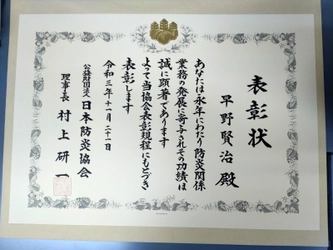 表彰状
早野賢治 殿
あなたは永年にわたり防炎関係
業務の発展に寄与されその功績は
誠に顕著であります
よって当協会表彰規程にもとづき
表彰します
令和三年十一月二十一日
公益財団法人 日本防炎協会
理事長 村上研一